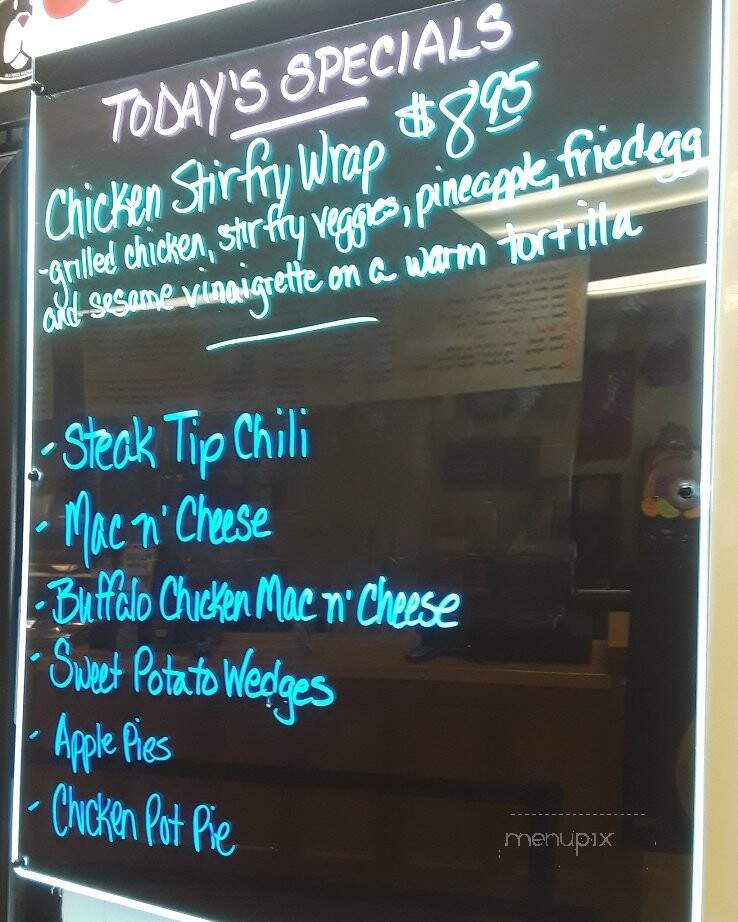 TODAY'S SPECIALS
Chicken Stirfry Wrap $8.95
-grilled chicken, stirfry veggies, pineapple, friedegg
and sesame vinaigrette on a warm tortilla
- Steak Tip Chili
- Mac n' Cheese
- Buffalo Chicken Mac n' Cheese
- Sweet Potato Wedges
- Apple Pies
- Chicken Pot Pie
menupix